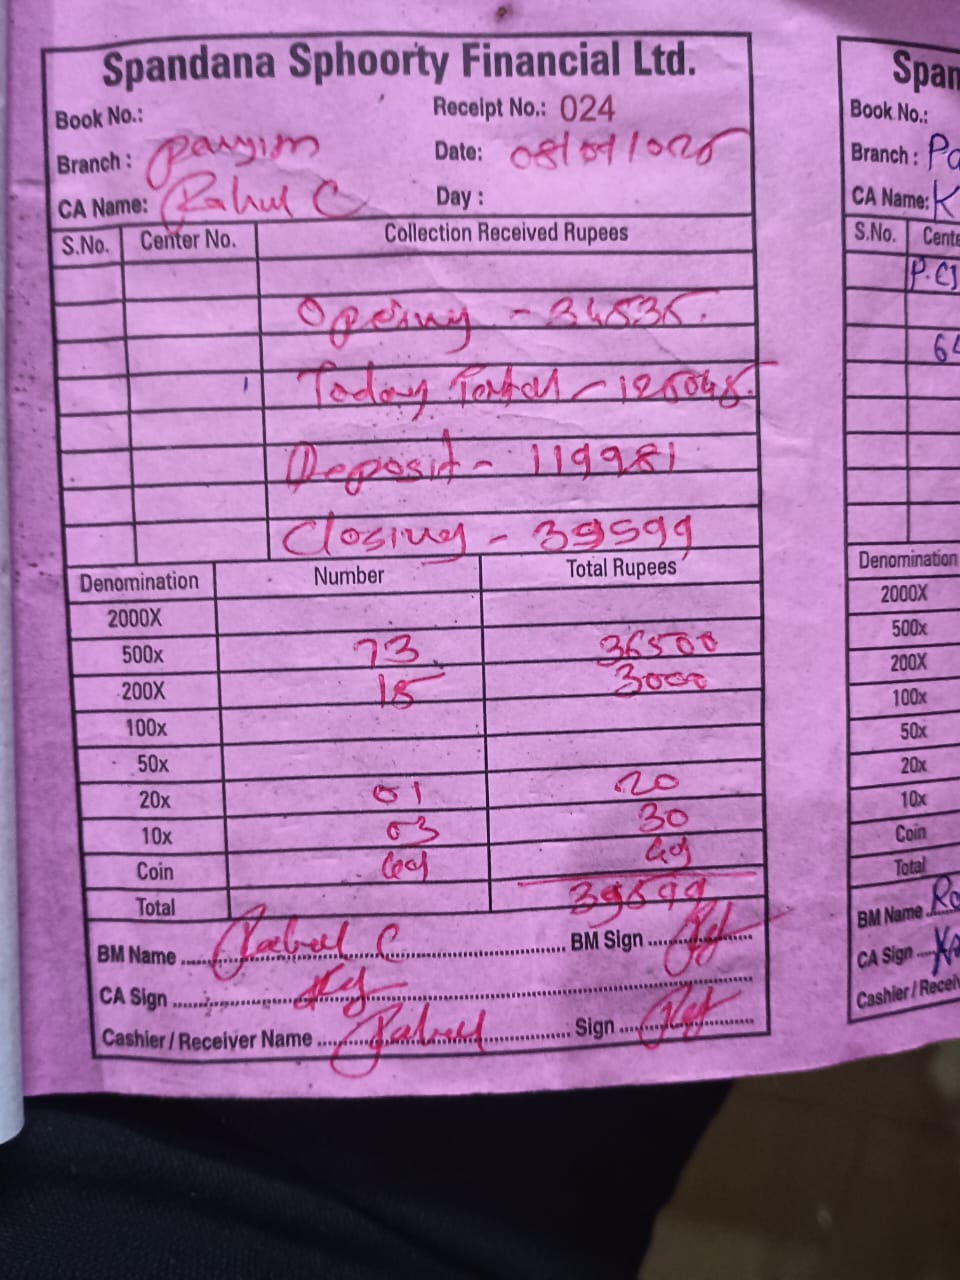 Spandana Sphoorty Financial Ltd.
Book No.:
Receipt No.: 024
Branch :
Date: 08/09/2025
CA Name: Rahul C
Day :
S.No. Center No. Collection Received Rupees
Opening - 34535.
Today Total - 125045.
Deposit - 119981
Closing - 39599
Denomination Number Total Rupees
2000X
500x 73 36500
200X 15 3000
100x
50x
20x 01 20
10x 03 30
Coin 49 49
Total 39599
BM Name Rahul C BM Sign
CA Sign
Cashier / Receiver Name Rahul Sign
Span
Book No.:
Branch : Pa
CA Name: K
S.No. Cente
P.CJ
64
Denomination
2000X
500x
200X
100x
50x
20x
10x
Coin
Total
BM Name Ra
CA Sign
Cashier / Receiv